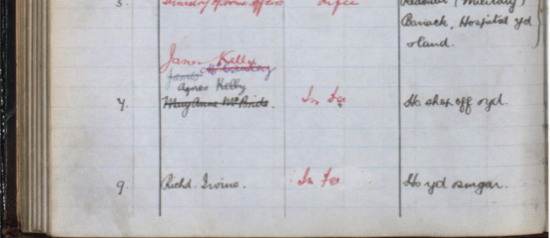 5.
office
(Military)
Barrack, Hospital yd
& land.
James Kelly
James
Agnes Kelly
7. Mary Anne McBride. In fee Ho shop off & yd.
9. Richd. Irvine. In fee Ho yd & garden.